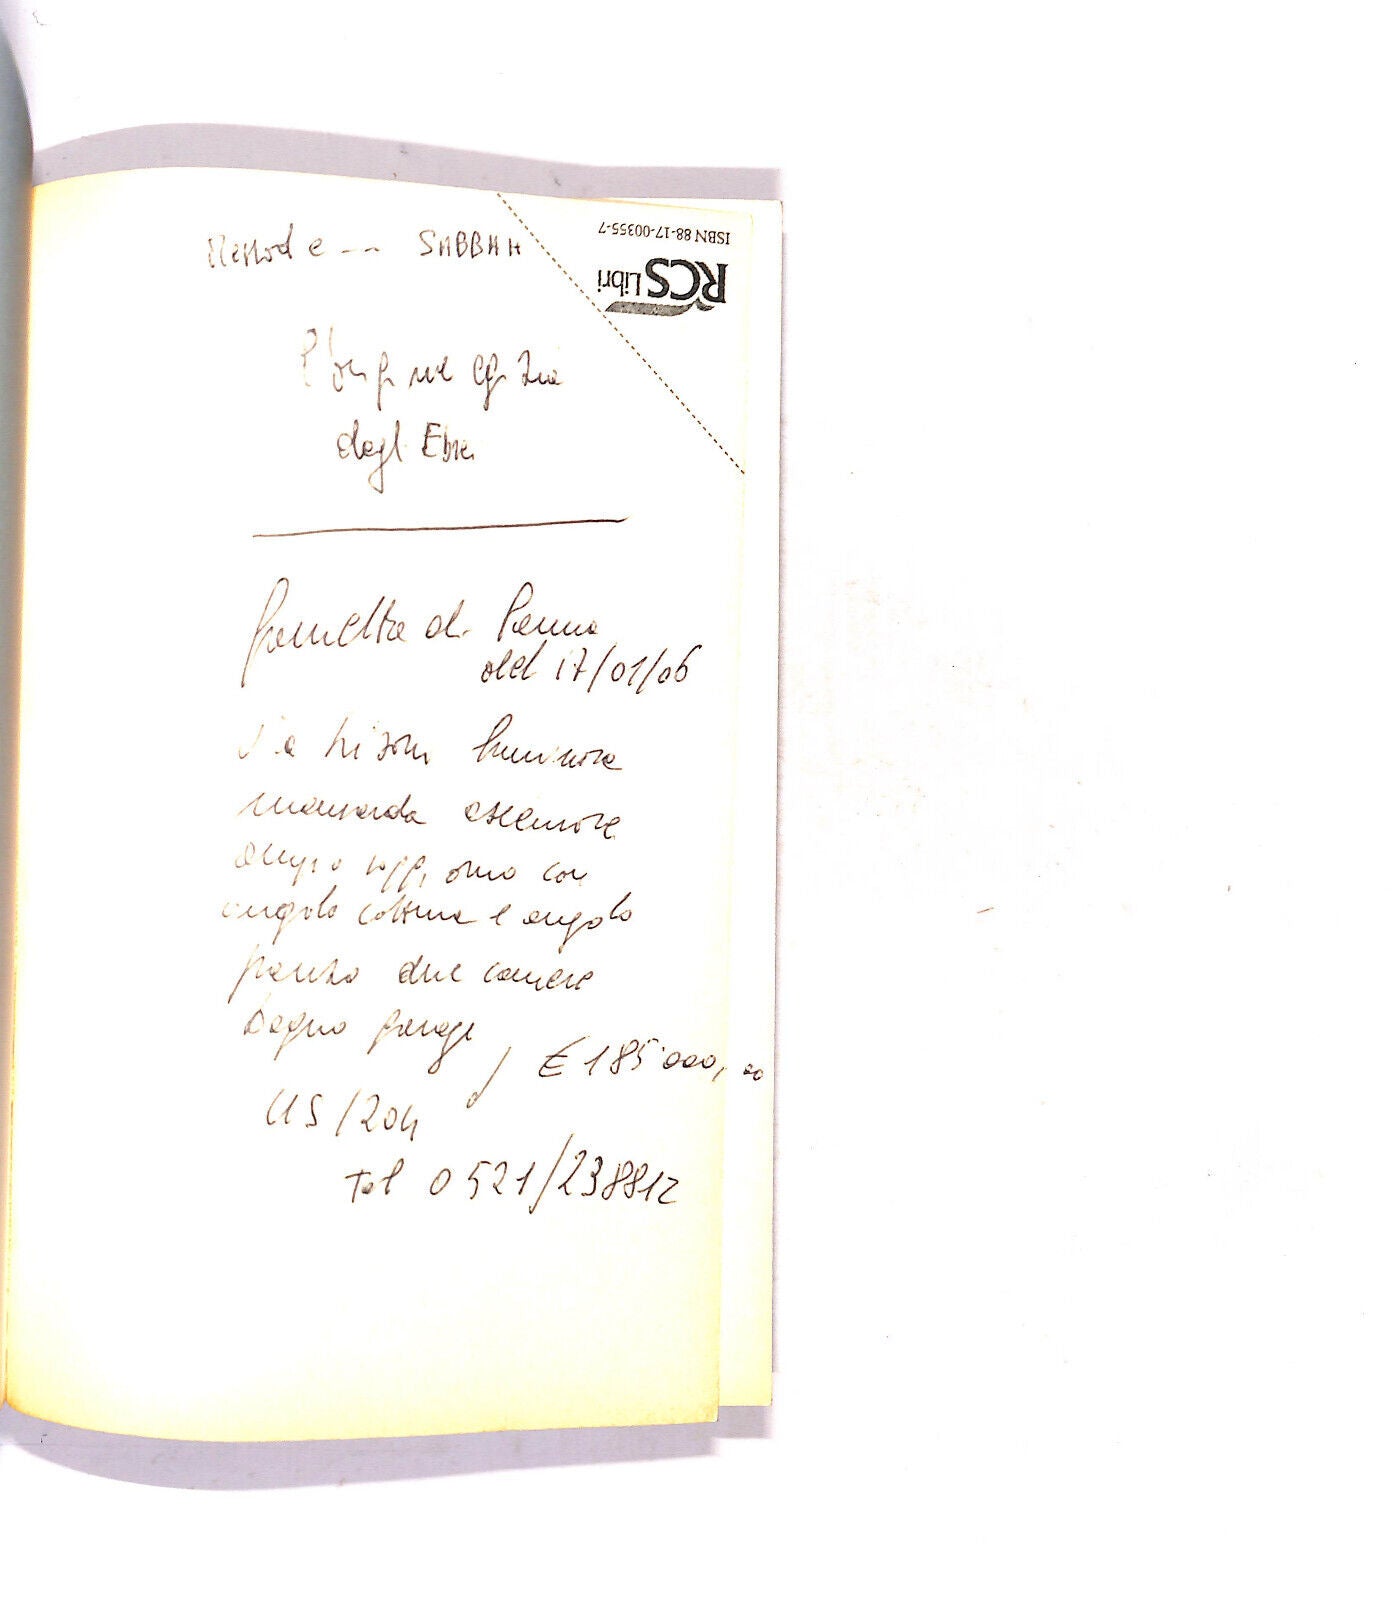 Messod e -- SABBAH
ISBN 88-17-00355-7
RCS Libri
l'orig ne egizia
degli Ebrei
gazzetta di Parma
del 17/01/06
Via luminosa
mansarda ascensore
ampio soggiorno con
angolo cottura e angolo
pranzo due camere
bagno garage
€ 185.000,00
US/204
Tel 0521/238812